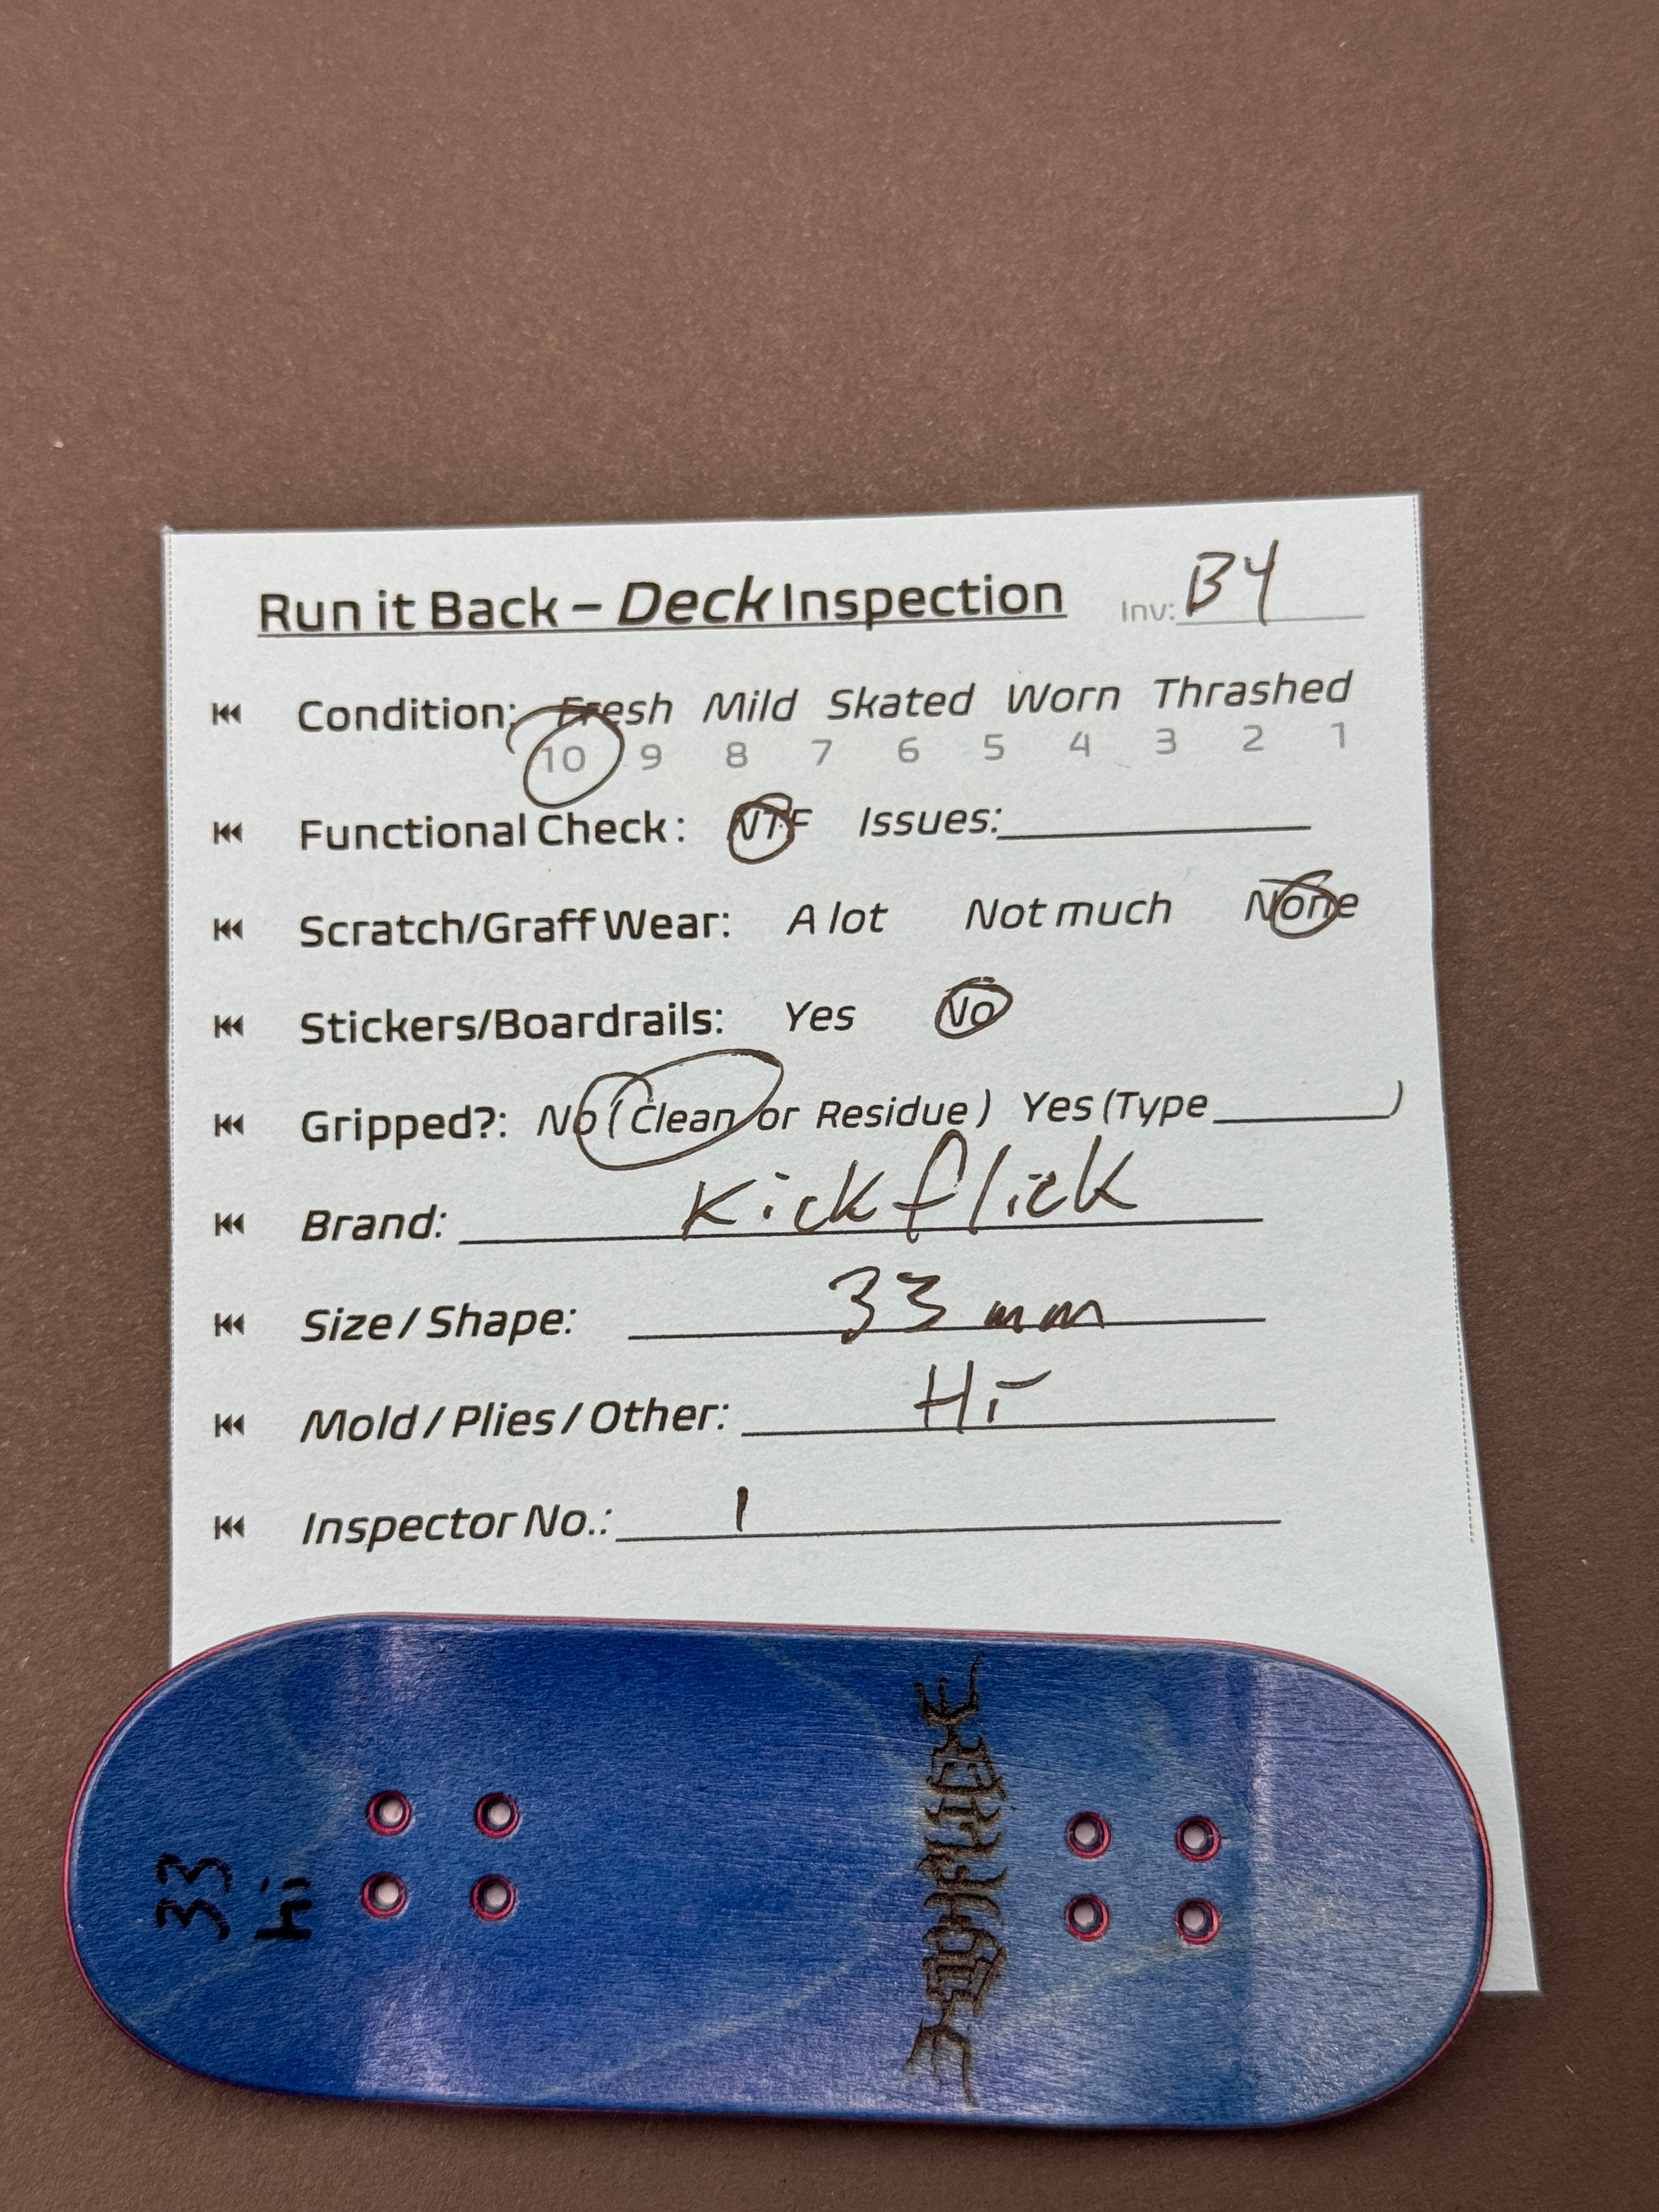 Run it Back – Deck Inspection Inv: B4
Condition: Fresh Mild Skated Worn Thrashed
10 9 8 7 6 5 4 3 2 1
Functional Check: NTF Issues:
Scratch/Graff Wear: A lot Not much None
Stickers/Boardrails: Yes No
Gripped?: No (Clean or Residue) Yes (Type )
Brand: Kickflick
Size / Shape: 33 mm
Mold / Plies / Other: Hi
Inspector No.: 1
33
Hi
KICKFLICK